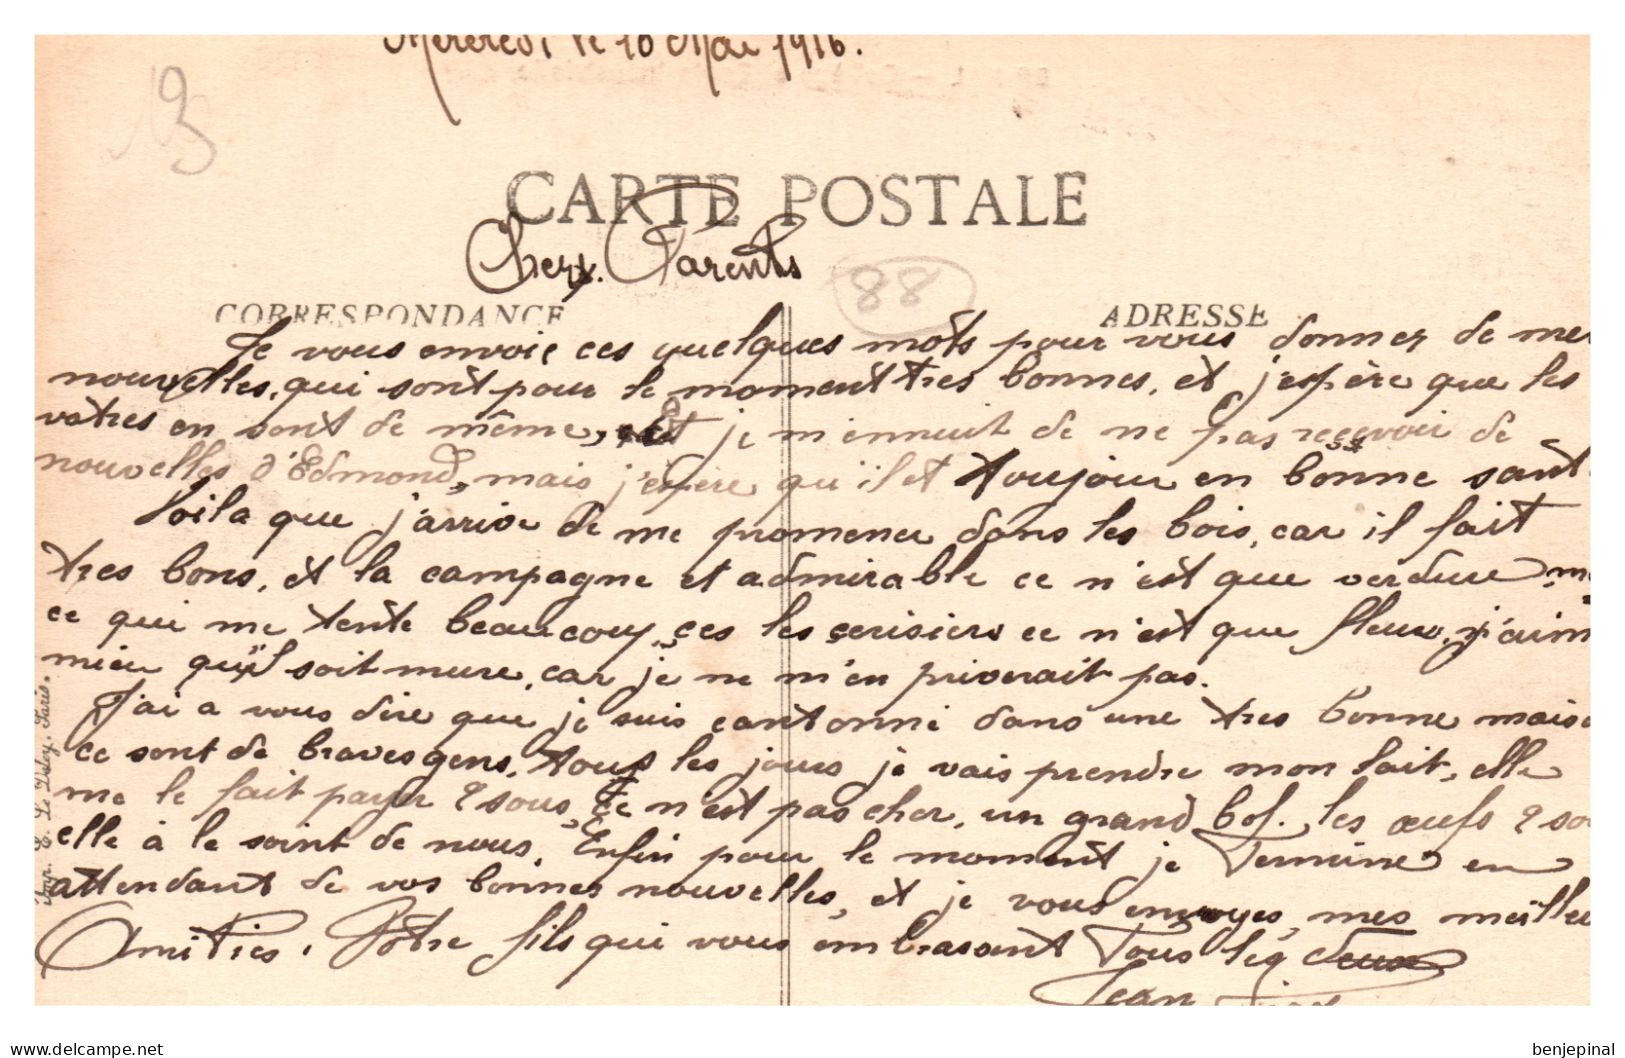 Mercredi le 10 Mai 1916.
CARTE POSTALE
Chers Parents
88
CORRESPONDANCE
ADRESSE
Je vous envoie ces quelques môts pour vous donner de mes
nouvelles, qui sont pour le moment tres bonnes, et j'espère que les
votres en sont de même, et je m'ennuit de ne pas recevoir de
nouvelles d'Edmond, mais j'espere qu'il et toujour en bonne sant
Voila que j'arrive de me promener dans les bois, car il fait
tres bons, et la campagne et admirable ce n'est que verdure m
ce qui me tente beaucoup, ces les cerisiers ce n'est que fleur, j'aim
mieu qu'il soit mure, car je ne m'en priverait pas.
J'ai a vous dire que je suis cantonné dans une tres bonne maiso
ce sont de braves gens, tous les jours je vais prendre mon lait, elle
me le fait payer 2 sous, ce n'est pas cher, un grand bol, les œufs 2 so
elle à le soint de nous. Enfin pour le moment je termine en
attendant de vos bonnes nouvelles, et je vous envoyes mes meilleu
Amitiés. Votre fils qui vous embrasent tous les deux
Jean
Imp. E. Le Deley, Paris.
delcampe.net
benjepinal